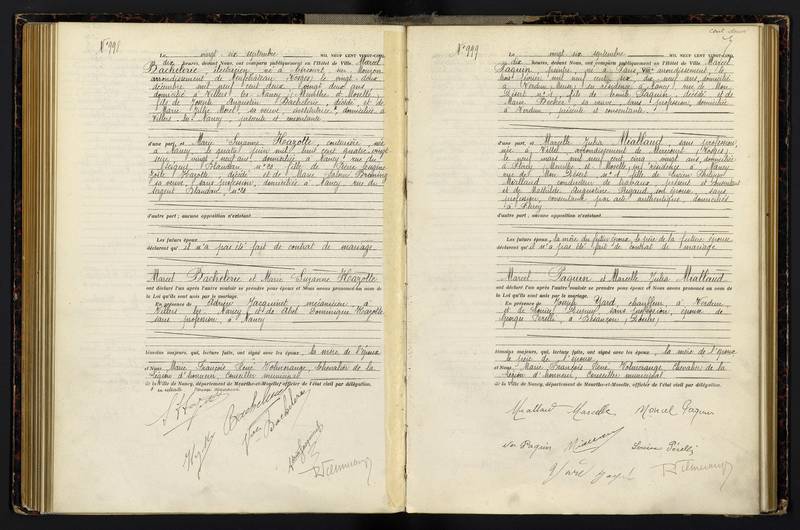 N° 998
Le vingt six septembre MIL NEUF CENT VINGT-CINQ,
dix heures, devant Nous, ont comparu publiquement en l'Hôtel de Ville, Marcel
Bachelerie, électricien, né à
arrondissement de Neufchâteau (Vosges) le vingt deux
décembre mil neuf cent deux, vingt deux ans,
domicilié à Villers les Nancy, Meurthe et Moselle,
fils de Joseph Augustin Bachelerie, décédé et de
Marie Julie Morel, sa veuve, institutrice, domiciliée à
Villers les Nancy, présente et consentante
d'une part, et Marie Suzanne Hazotte, couturière, née
à Nancy le quatre juin mil huit cent quatre vingt
seize, vingt neuf ans, domiciliée à Nancy, rue du
Sergent Blandan, n° 28, fille de Pierre Eugène
Hazotte, décédé et de Marie Salomé
sa veuve, sans profession, domiciliée à Nancy, rue du
Sergent Blandan, n° 28
d'autre part ; aucune opposition n'existant.
Les futurs époux
déclarent qu'il n'a pas été fait de contrat de mariage.
Marcel Bachelerie et Marie Suzanne Hazotte
ont déclaré l'un après l'autre vouloir se prendre pour époux et Nous avons prononcé au nom de
la Loi qu'ils sont unis par le mariage.
En présence de Adrien Jacquinet, mécanicien à
Villers les Nancy et de Abel Dominique Hazotte
sans profession, à Nancy
témoins majeurs, qui, lecture faite, ont signé avec les époux, la mère de l'époux
et Nous, Marie François René Volmerange, Chevalier de la
Légion d'honneur, Conseiller municipal
de la Ville de Nancy, département de Meurthe-et-Moselle, officier de l'état civil par délégation.
Bachelerie
N° 999
Le vingt six septembre MIL NEUF CENT VINGT-CINQ,
dix heures, devant Nous, ont comparu publiquement en l'Hôtel de Ville, Marcel
Paquin, peintre, né à Paris, arrondissement, le
février mil neuf cent six, dix neuf ans, domicilié
à Verdun, Meuse, en résidence à Nancy, rue de Mon
Désert n° 1, fils de Paquin, décédé et de
Marie Becker, sa veuve, sans profession, domiciliée
à Verdun, présente et consentante
d'une part, et Marcelle Julia Miallaud, sans profession,
née à Vittel, arrondissement de Mirecourt (Vosges)
le neuf mars mil neuf cent cinq, vingt ans, domiciliée
à Meurthe et Moselle, en résidence à Nancy
rue de Mon Désert n° 1, fille de Lucien Philippe
Miallaud, conducteur de travaux, présent et consentant
et de Mathilde Augustine son épouse, sans
profession, consentante par acte authentique, domiciliés
d'autre part ; aucune opposition n'existant.
Les futurs époux, la mère du futur époux, le père de la future épouse
déclarent qu'il n'a pas été fait de contrat de mariage.
Marcel Paquin et Marcelle Julia Miallaud
ont déclaré l'un après l'autre vouloir se prendre pour époux et Nous avons prononcé au nom de
la Loi qu'ils sont unis par le mariage.
En présence de Joseph Yard, chauffeur, à Verdun
et de Louise sans profession, épouse de
Georges Pérelli, à Besançon (Doubs)
témoins majeurs, qui, lecture faite, ont signé avec les époux, la mère de l'époux
le père de l'épouse
et Nous, Marie François René Volmerange, Chevalier de la
Légion d'honneur, Conseiller municipal
de la Ville de Nancy, département de Meurthe-et-Moselle, officier de l'état civil par délégation.
Miallaud Marcelle Marcel Paquin
Paquin Louise Pérelli